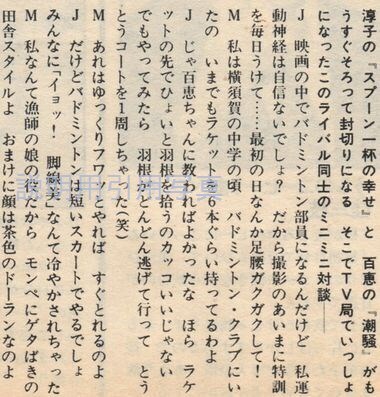 淳子の『スプーン一杯の幸せ』と 百恵の『潮騒』がも
うすぐそろって封切りになる そこでTV局でいっしょ
になったこのライバル同士のミニミニ対談──
J 映画の中でバドミントン部員になるんだけど 私運
動神経は自信ないでしょ? だから撮影のあいまに特訓
を毎日うけて……最初の日なんか足腰ガクガクして!
M 私は横須賀の中学の頃 バドミントン・クラブにい
たの いまでもラケットを1本ぐらい持ってるわよ
J じゃ百恵ちゃんに教わればよかったな ほら ラケ
ットの先でひょいと羽根を拾うのカッコいいじゃない
でもやってみたら 羽根がどんどん逃げて行って とう
とうコートを1周しちゃった(笑)
M あれはゆっくりフワッとやれば すぐとれるのよ
J だけどバドミントンは短いスカートでやるでしょ
みんなに「イョッ! 脚線美」なんて冷やかされちゃった
M 私なんて漁師の娘の役だから モンペにゲタばきの
田舎スタイルよ おまけに顔は茶色のドーランなのよ